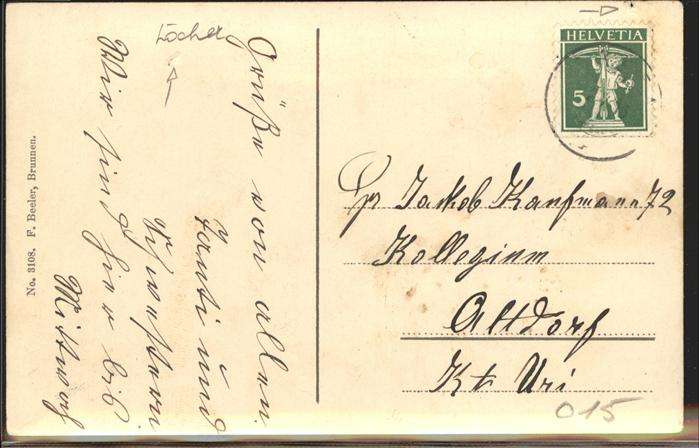 Grüße von allen.
Tanti und
Schwestern
Wir sind hier bis
Mittwoch
Löcher
No. 3108. F. Beeler, Brunnen.
HELVETIA
5
Jakob Kaufmann 72
Kollegium
Altdorf
Kt Uri
015